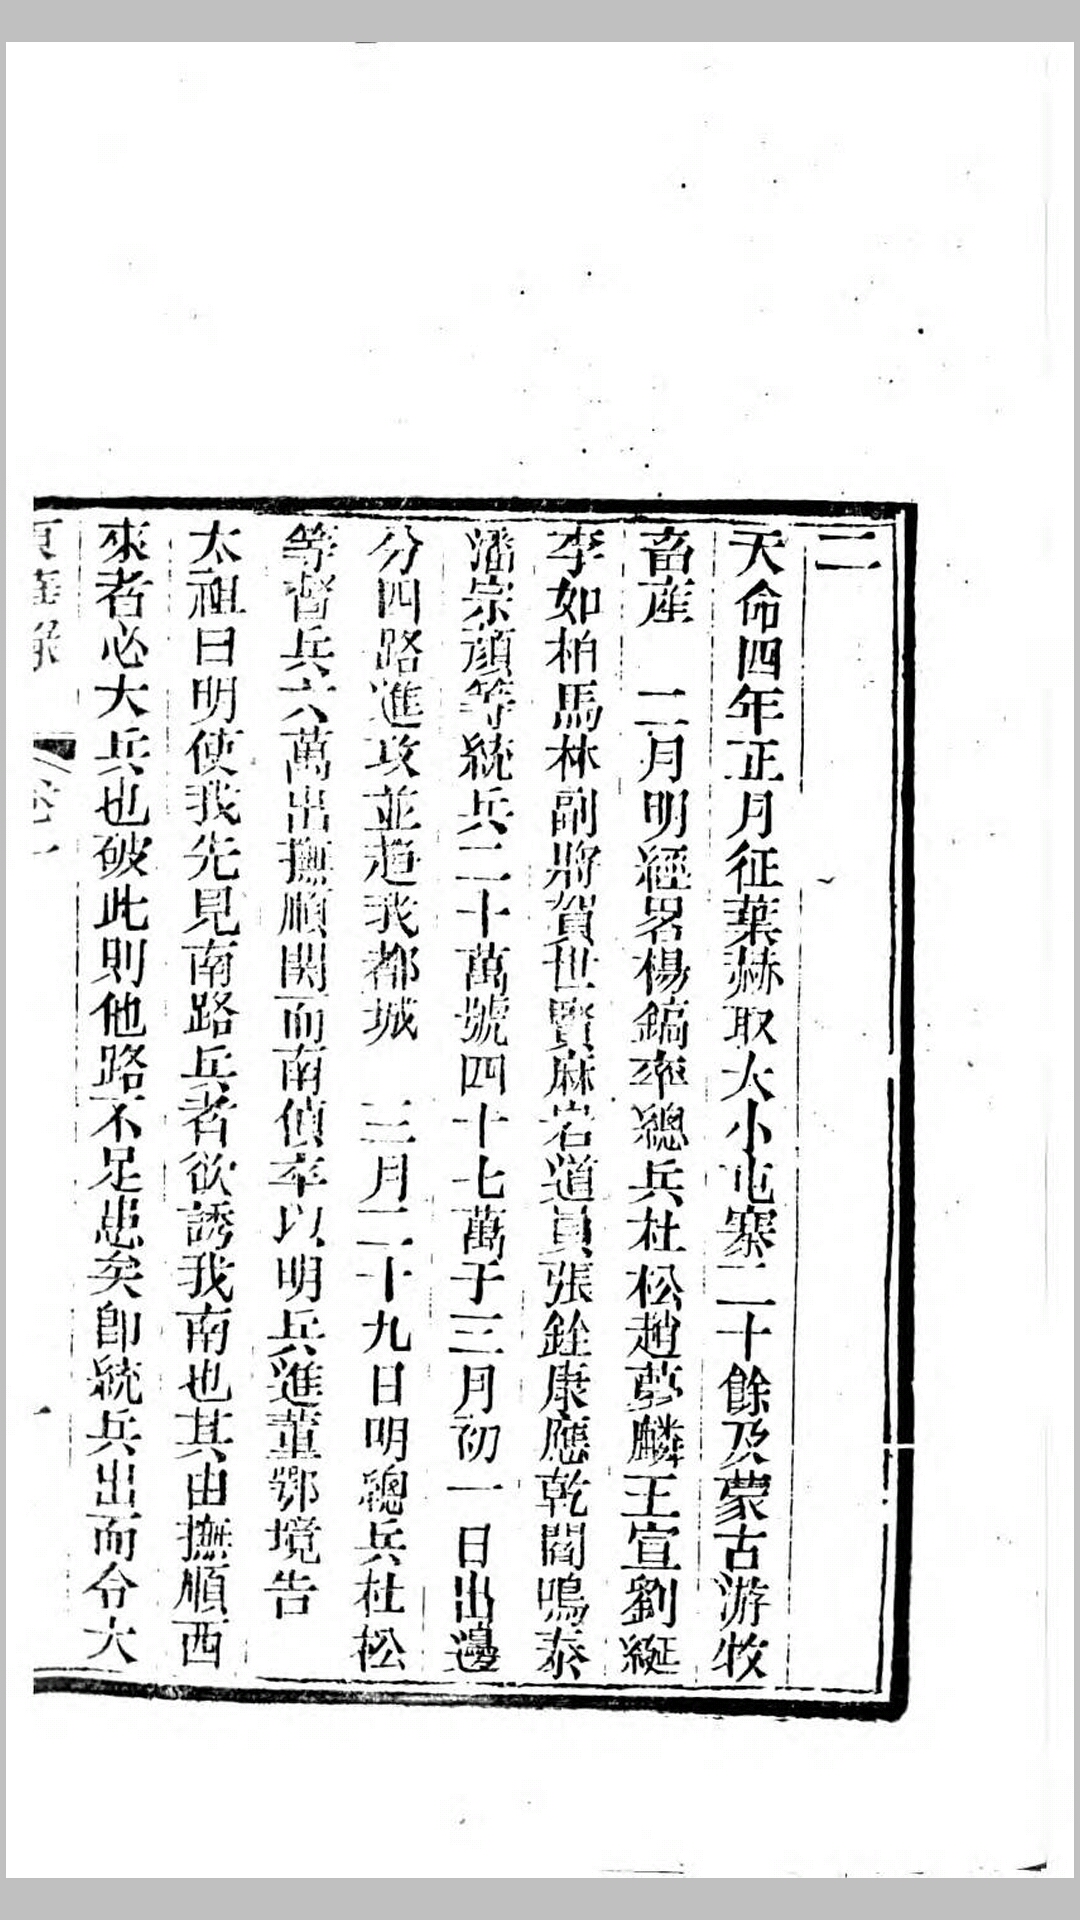 二
天命四年正月征葉赫取大小屯寨二十餘及蒙古游牧
畜産 二月明經畧楊鎬率總兵杜松趙夢麟王宣劉綎
李如柏馬林副將賀世賢麻岩道員張銓康應乾閻鳴泰
潘宗顔等統兵二十萬號四十七萬于三月初一日出邊
分四路進攻並趨我都城 三月二十九日明總兵杜松
等督兵六萬出撫順関而南偵卒以明兵進董鄂境告
太祖曰明使我先見南路兵者欲誘我南也其由撫順西
來者必大兵也破此則他路不足患矣即統兵出而令大
東華錄 卷一 一